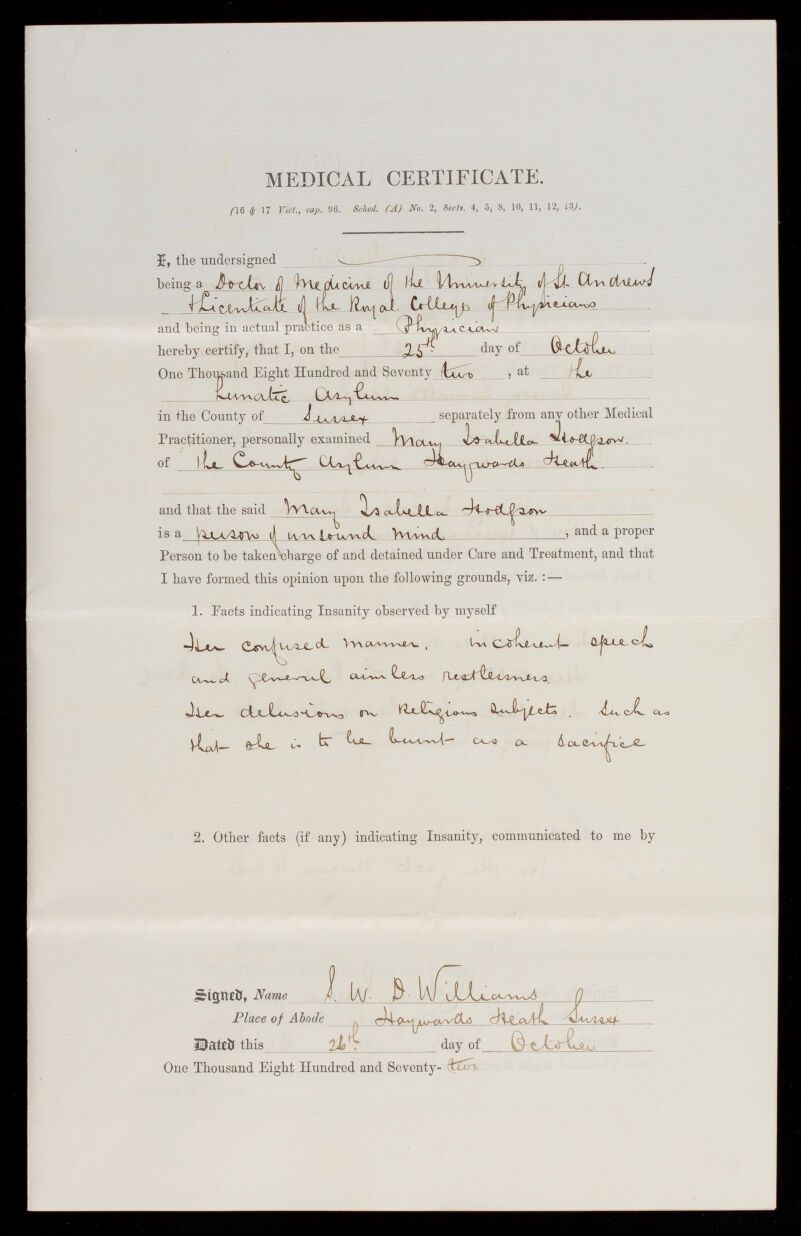 MEDICAL CERTIFICATE.
(16 & 17 Vict., cap. 96. Sched. (A) No. 2, Sects. 4, 5, 8, 10, 11, 12, 13).
I, the undersigned
being a Doctor of Medicine of the University of St. Andrews
& Licentiate of the Royal College of Physicians
and being in actual practice as a Physician
hereby certify, that I, on the 25th day of October
One Thousand Eight Hundred and Seventy two, at the
Lunatic Asylum
in the County of Sussex separately from any other Medical
Practitioner, personally examined Mary Isabella Hodgson.
of the County Asylum Haywards Heath.
and that the said Mary Isabella Hodgson
is a person of unsound mind, and a proper
Person to be taken charge of and detained under Care and Treatment, and that
I have formed this opinion upon the following grounds, viz. :—
1. Facts indicating Insanity observed by myself
Her confused manner. incoherent speech
and general aimless restlessness.
Her delusions on Religious Subjects. Such as
that she is to be burnt as a Sacrifice
2. Other facts (if any) indicating Insanity, communicated to me by
Signed, Name S. W. D. Williams
Place of Abode Haywards Heath Sussex
Dated this 26th day of October
One Thousand Eight Hundred and Seventy- two